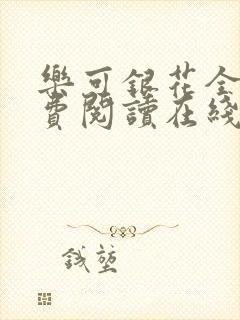 樂可銀花全
費閱讀在綫